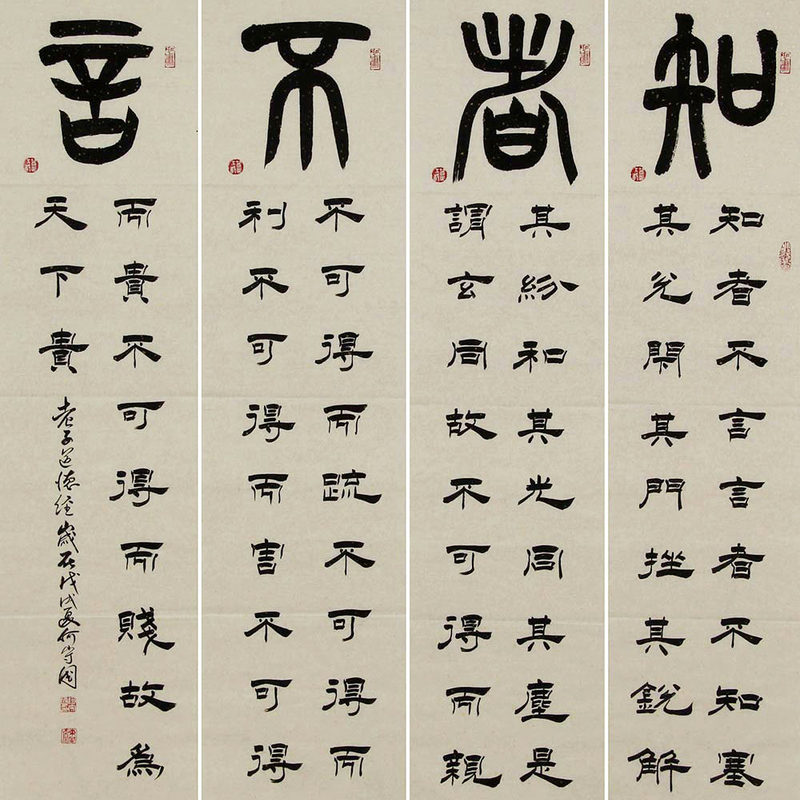 知
知者不言言者不知塞
其兌閉其門挫其銳解
者
其紛和其光同其塵是
謂玄同故不可得而親
不
不可得而疏不可得而
利不可得而害不可得
言
而貴不可得而賤故為
天下貴
老子道德經歲在戊戌夏何守國